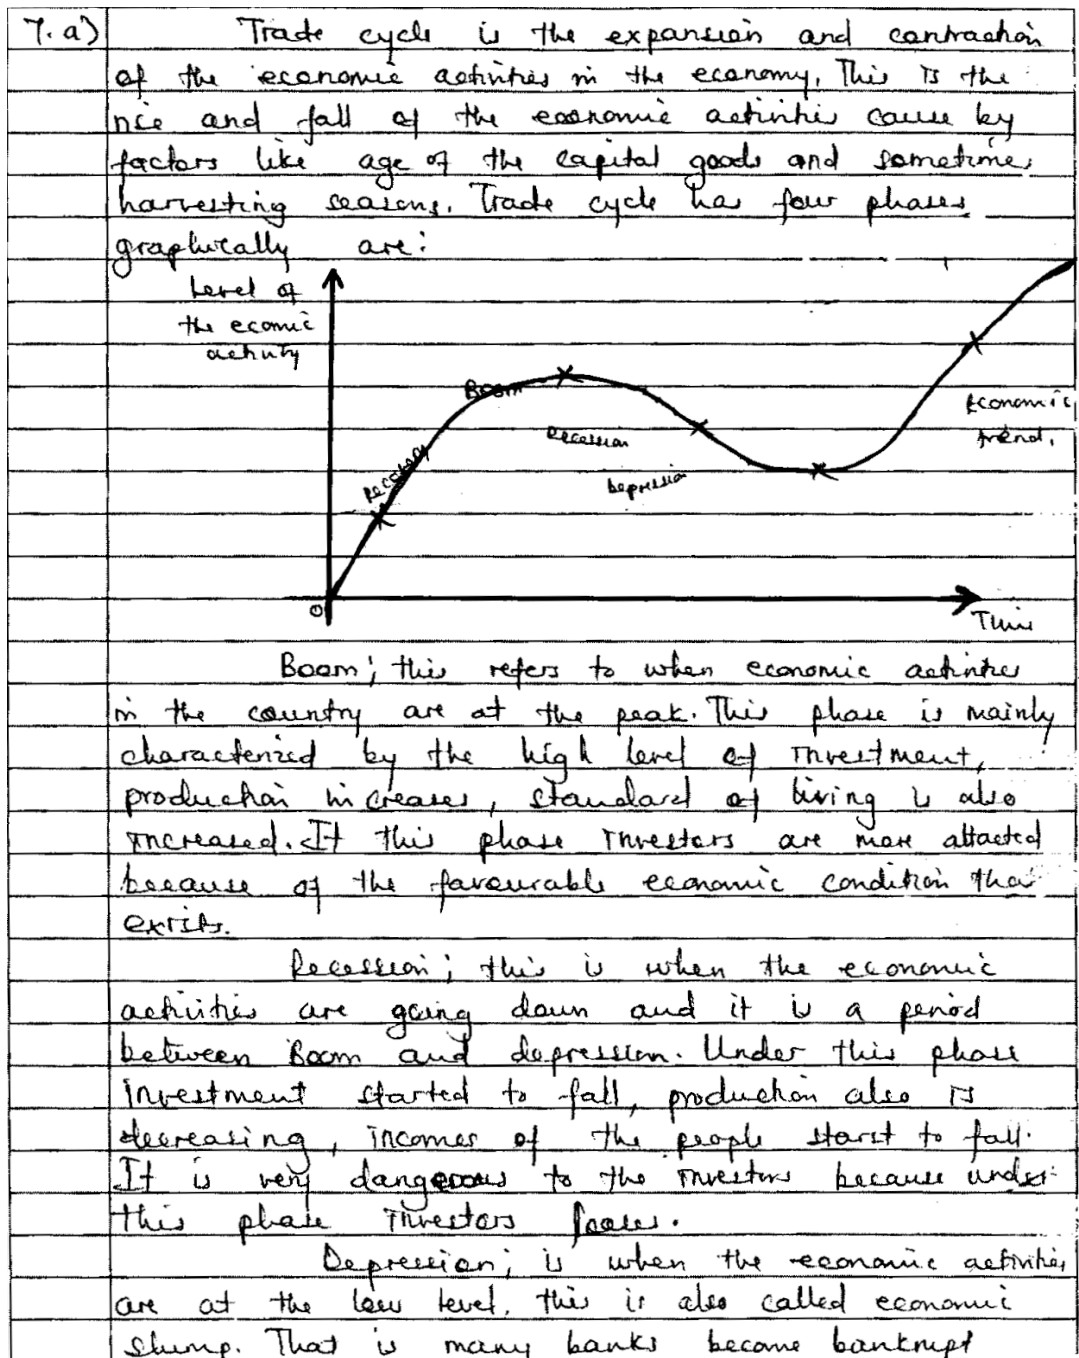 7. a) Trade cycle is the expansion and contraction
of the economic activities in the economy. This is the
rise and fall of the economic activities cause by
factors like age of the capital goods and sometimes
harvesting seasons. Trade cycle has four phases
graphically are:
Level of
the ecomic
activity
Boom
recession
depression
recovery
Economic
trend.
O
Time
Boom; this refers to when economic activities
in the country are at the peak. This phase is mainly
characterized by the high level of investment,
production increases, standard of living is also
increased. It this phase investors are more attacted
because of the favourable economic condition that
exists.
Recession; this is when the economic
activities are going down and it is a period
between Boom and depression. Under this phase
investment started to fall, production also is
decreasing, incomes of the people starst to fall.
It is very dangerous to the investors because under
this phase investors looses.
Depression; is when the economic activities
are at the low level. this is also called economic
slump. That is many banks become bankrupt